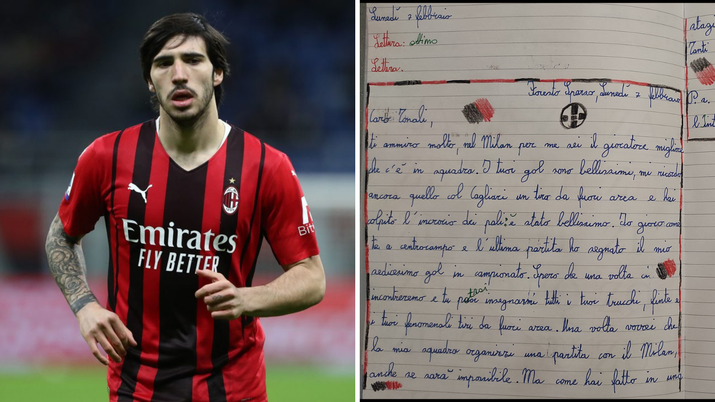 Emirates
FLY BETTER
PUMA
Lunedì 7 febbraio
Lettura: ottimo
Lettura.
Foresto Sparso, Lunedì 7 febbraio
Caro Tonali,
ti ammiro molto, nel Milan per me sei il giocatore migliore
che c'è in squadra. I tuoi gol sono bellissimi, mi ricordo
ancora quello col Cagliari un tiro da fuori area e hai
colpito l'incrocio dei pali: è stato bellissimo. Io gioco come
te a centrocampo e l'ultima partita ho segnato il mio
sedicesimo gol in campionato. Spero che una volta ci
incontreremo e tu insegnarmi tutti i tuoi trucchi, finte e
i tuoi fenomenali tiri da fuori area. Una volta vorrei che
la mia squadra organizzi una partita con il Milan,
anche se sarà impossibile. Ma come hai fatto in una
stagi
Tanti
P.
l'Int